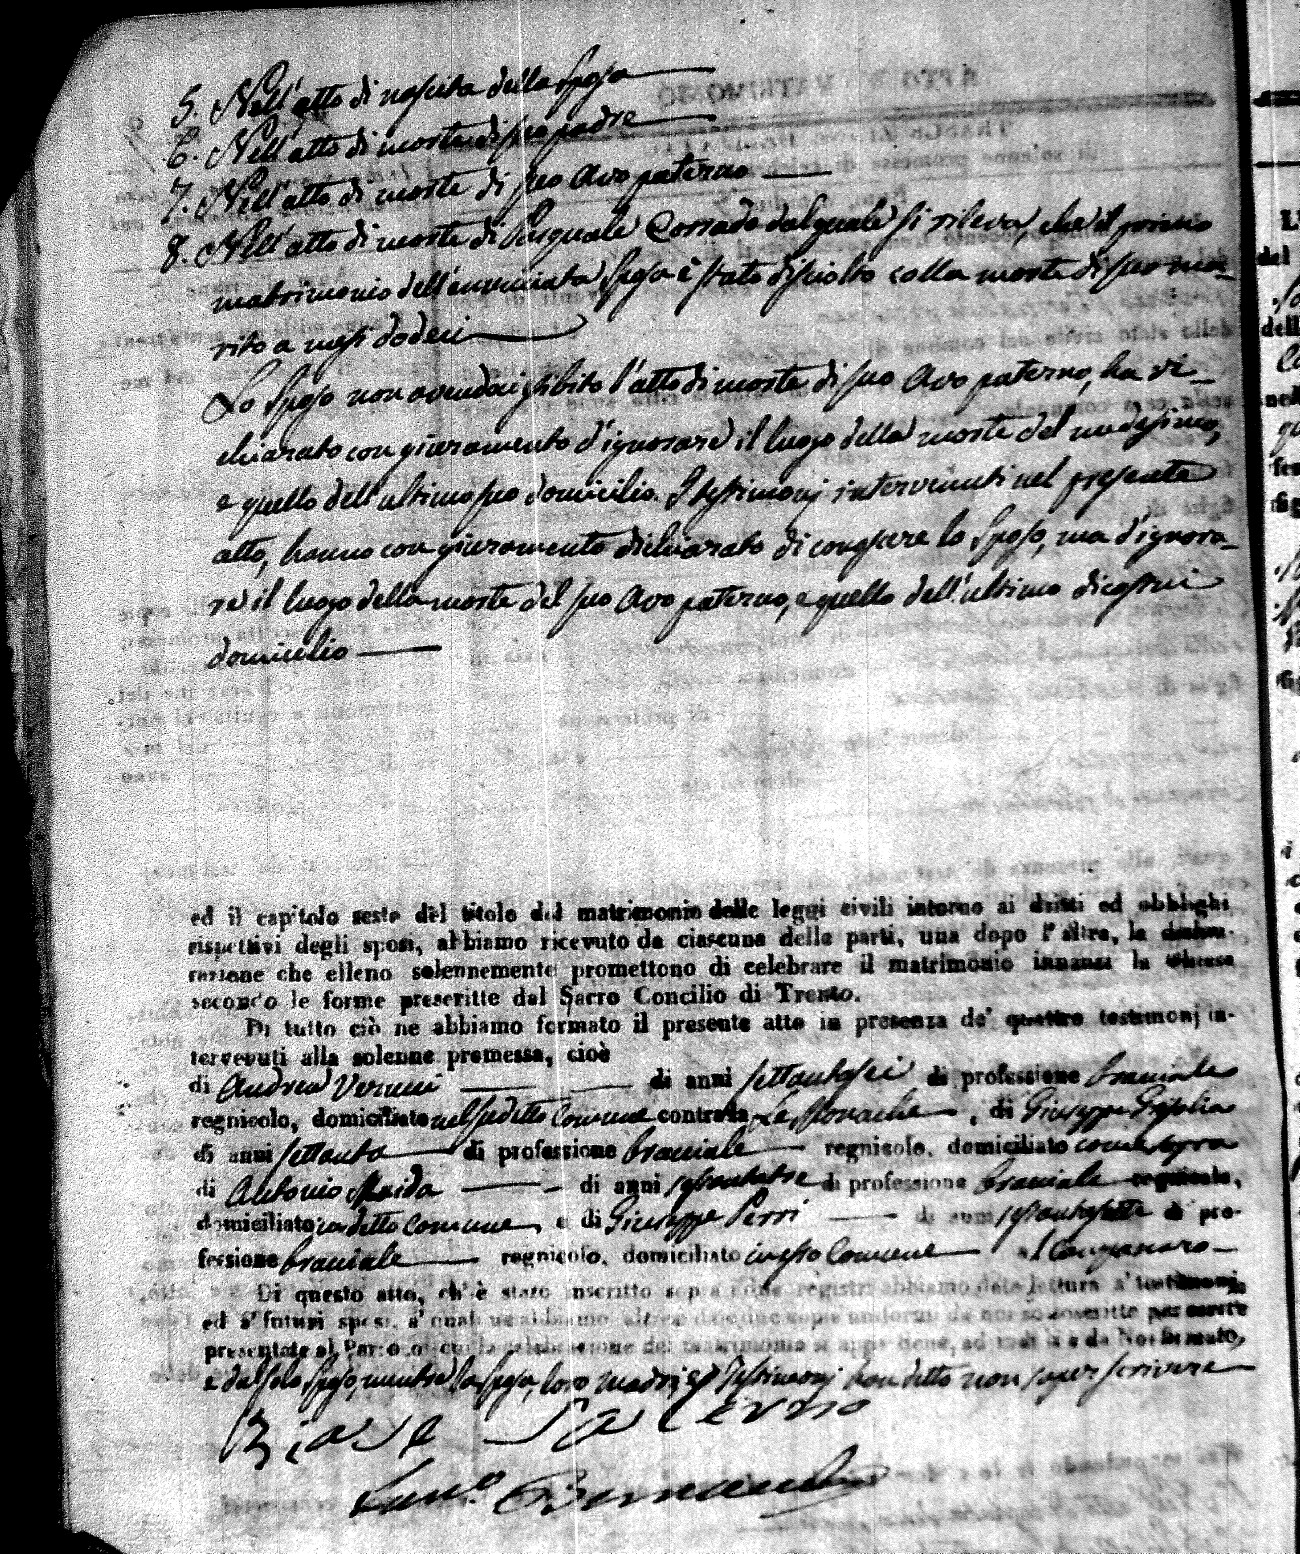 5. Nell'atto di nascita della sposa
6. Nell'atto di morte di suo padre
7. Nell'atto di morte di suo Avo paterno
8. Nell'atto di morte di Pasquale Corrado dal quale si rileva, che il primo
matrimonio dell'enunciata sposa è stato disciolto colla morte di suo ma-
rito a mesi dodeci
Lo sposo non avendo esibito l'atto di morte di suo Avo paterno, ha di-
chiarato con giuramento d'ignorare il luogo della morte del medesimo,
e quello dell'ultimo suo domicilio. I testimonj intervenuti nel presente
atto, hanno con giuramento dichiarato di conoscere lo sposo, ma d'ignora-
re il luogo della morte del suo Avo paterno, e quello dell'ultimo di costui
domicilio
ed il capitolo sesto del titolo del matrimonio delle leggi civili intorno ai dritti ed obblighi
rispettivi degli sposi, abbiamo ricevuto da ciascuna delle parti, una dopo l'altra, la dichia-
razione che elleno solennemente promettono di celebrare il matrimonio innanzi la Chiesa
secondo le forme prescritte dal Sacro Concilio di Trento.
Di tutto ciò ne abbiamo formato il presente atto in presenza de' quattro testimonj in-
tervenuti alla solenne promessa, cioè
di Andrea Verucci di anni settantasei di professione bracciale
regnicolo, domiciliato nel sudetto Comune contrada Le Monache, di Giuseppe
di anni settanta di professione bracciale regnicolo, domiciliato come sopra
di Antonio Maida di anni di professione bracciale regnicolo,
domiciliato in detto Comune, e di Giuseppe Perri di anni di pro-
fessione bracciale regnicolo, domiciliato in esso Comune
Di questo atto, ch'è stato inscritto sopra i due registri abbiamo dato lettura a' testimonj
ed a' futuri sposi, a' quali ne abbiamo altresì date due copie uniformi da noi sottoscritte per essere
presentate al Parroco cui la celebrazione del matrimonio si appartiene, ed indi si è da Noi firmato,
e dal solo sposo, mentre la sposa, loro madri, e Testimonj han detto non saper scrivere
Biase Salerno